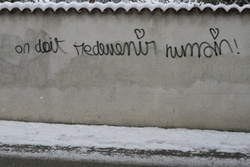 on doit redevenir humain !